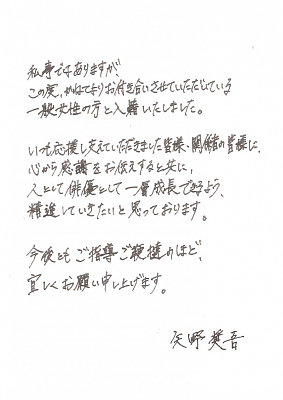 私事ではありますが、
この度、かねてよりお付き合いさせていただいている
一般女性の方と入籍いたしました。
いつも応援し支えていただきました皆様、関係の皆様に、
心から感謝をお伝えすると共に、
人として俳優として一層成長できるよう、
精進していきたいと思っております。
今後ともご指導ご鞭撻のほど、
宜しくお願い申し上げます。
矢野奨吾